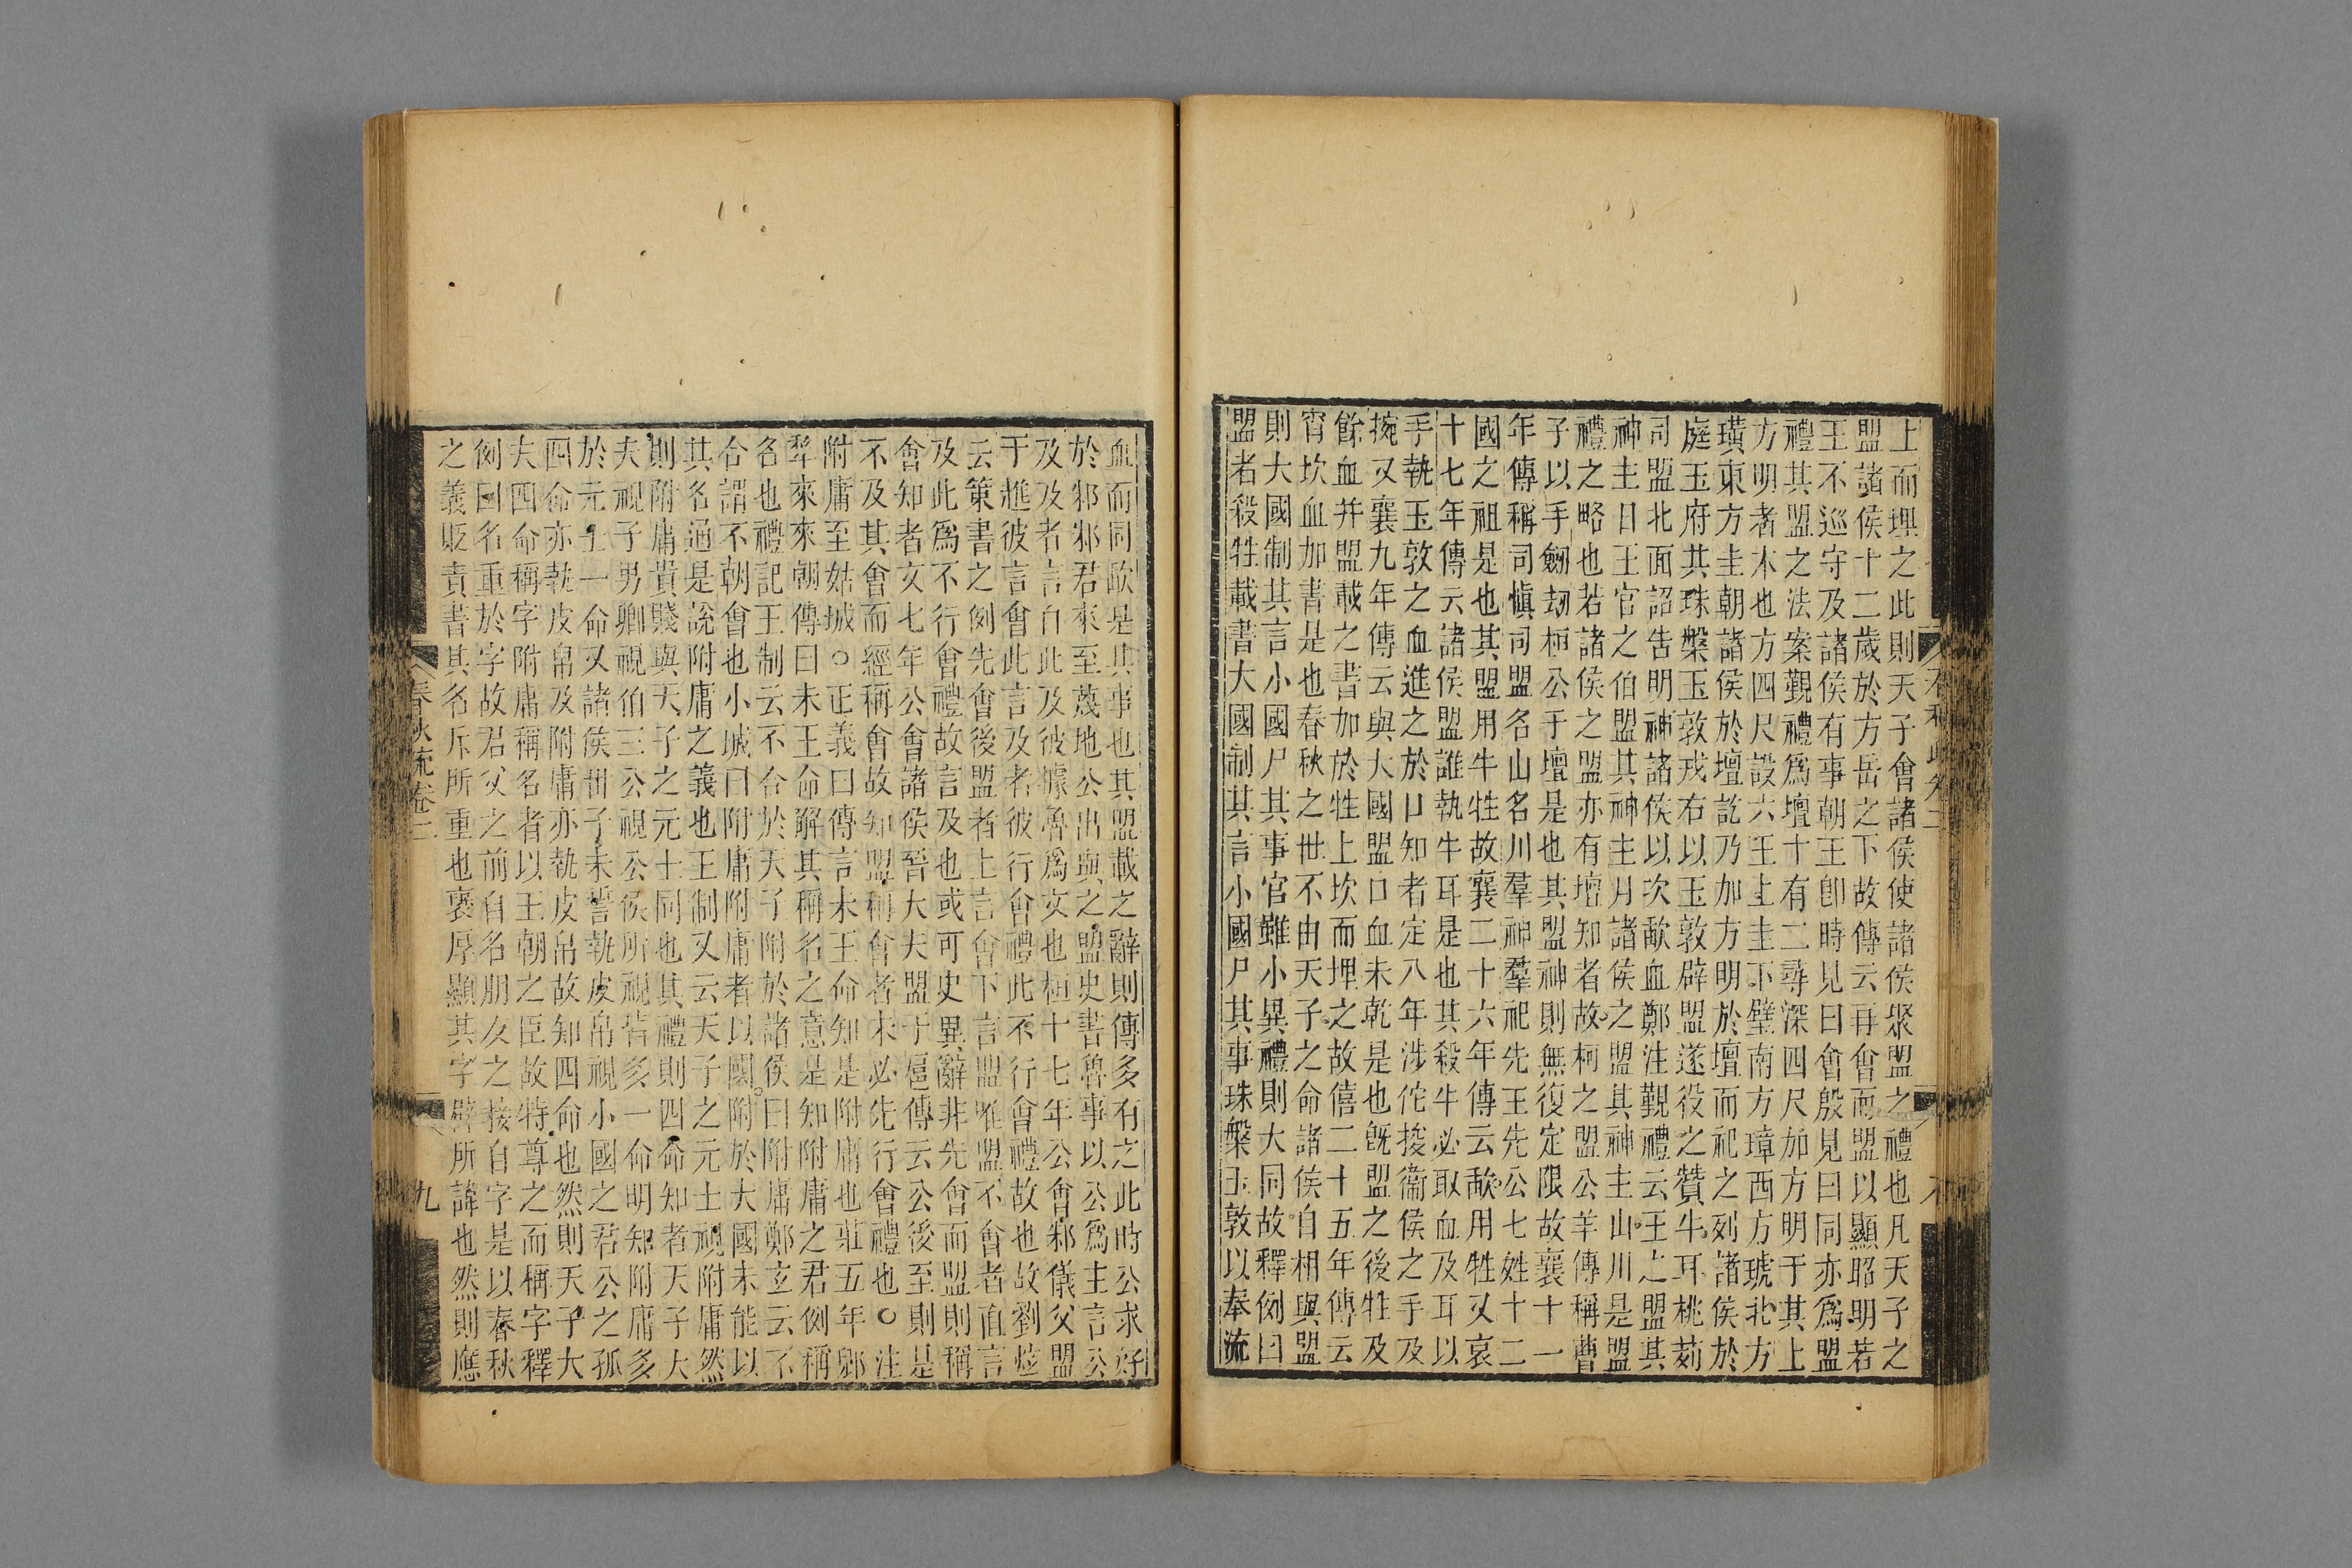 上而埋之此則天子會諸侯使諸侯聚盟之禮也凡天子之
盟諸侯十二歲於方岳之下故傳云再會而盟以顯昭明若
王不巡守及諸侯有事朝王卽時見曰會殷見曰同亦爲盟
禮其盟之法案覲禮爲壇十有二尋深四尺加方明于其上
方明者木也方四尺設六玉上圭下璧南方璋西方琥北方
璜東方圭朝諸侯於壇訖乃加方明於壇而祀之列諸侯於
庭玉府其珠槃玉敦戎右以玉敦辟盟遂役之贊牛耳桃茢
司盟北面詔告明神諸侯以次歃血鄭注覲禮云王之盟其
神主日王官之伯盟其神主月諸侯之盟其神主山川是盟
禮之略也若諸侯之盟亦有壇知者故柯之盟公羊傳稱曹
子以手劒劫桓公于壇是也其盟神則無復定限故襄十一
年傳稱司愼司盟名山名川羣神羣祀先王先公七姓十二
國之祖是也其盟用牛牲故襄二十六年傳云歃用牲又哀
十七年傳云諸侯盟誰執牛耳是也其殺牛必取血及耳以
手執玉敦之血進之於口知者定八年涉佗捘衞侯之手及
捥又襄九年傳云與大國盟口血未乾是也旣盟之後牲及
餘血并盟載之書加於牲上坎而埋之故僖二十五年傳云
宵坎血加書是也春秋之世不由天子之命諸侯自相與盟
則大國制其言小國尸其事官雖小異禮則大同故釋例曰
盟者殺牲載書大國制其言小國尸其事珠槃玉敦以奉流
血而同歃是其事也其盟載之辭則傳多有之此時公求好
於邾邾君來至蔑地公出與之盟史書魯事以公爲主言公
及及者言自此及彼據魯爲文也桓十七年公會邾儀父盟
于趡彼言會此言及者彼行會禮此不行會禮故也故劉炫
云策書之例先會後盟者上言會下言盟唯盟不會者直言
及此爲不行會禮故言及也或可史異辭非先會而盟則稱
會知者文七年公會諸侯晉大夫盟于扈傳云公後至則是
不及其會而經稱會故知盟稱會者未必先行會禮也○注
附庸至姑城○正義曰傳言未王命知是附庸也莊五年郳
犂來來朝傳曰未王命解其稱名之意是知附庸之君例稱
名也禮記王制云不合於天子附於諸侯曰附庸鄭玄云不
合謂不朝會也小城曰附庸附庸者以國附於大國未能以
其名通是說附庸之義也王制又云天子之元士視附庸然
則附庸貴賤與天子之元士同也其禮則四命知者天子大
夫視子男卿視伯三公視公侯所視皆多一命明知附庸多
於元士一命又諸侯世子未誓執皮帛視小國之君公之孤
四命亦執皮帛及附庸亦執皮帛故知四命也然則天子大
夫四命稱字附庸稱名者以王朝之臣故特尊之而稱字釋
例曰名重於字故君父之前自名朋友之接自字是以春秋
之義貶責書其名斥所重也襃厚顯其字辟所諱也然則應
春秋疏卷二
九